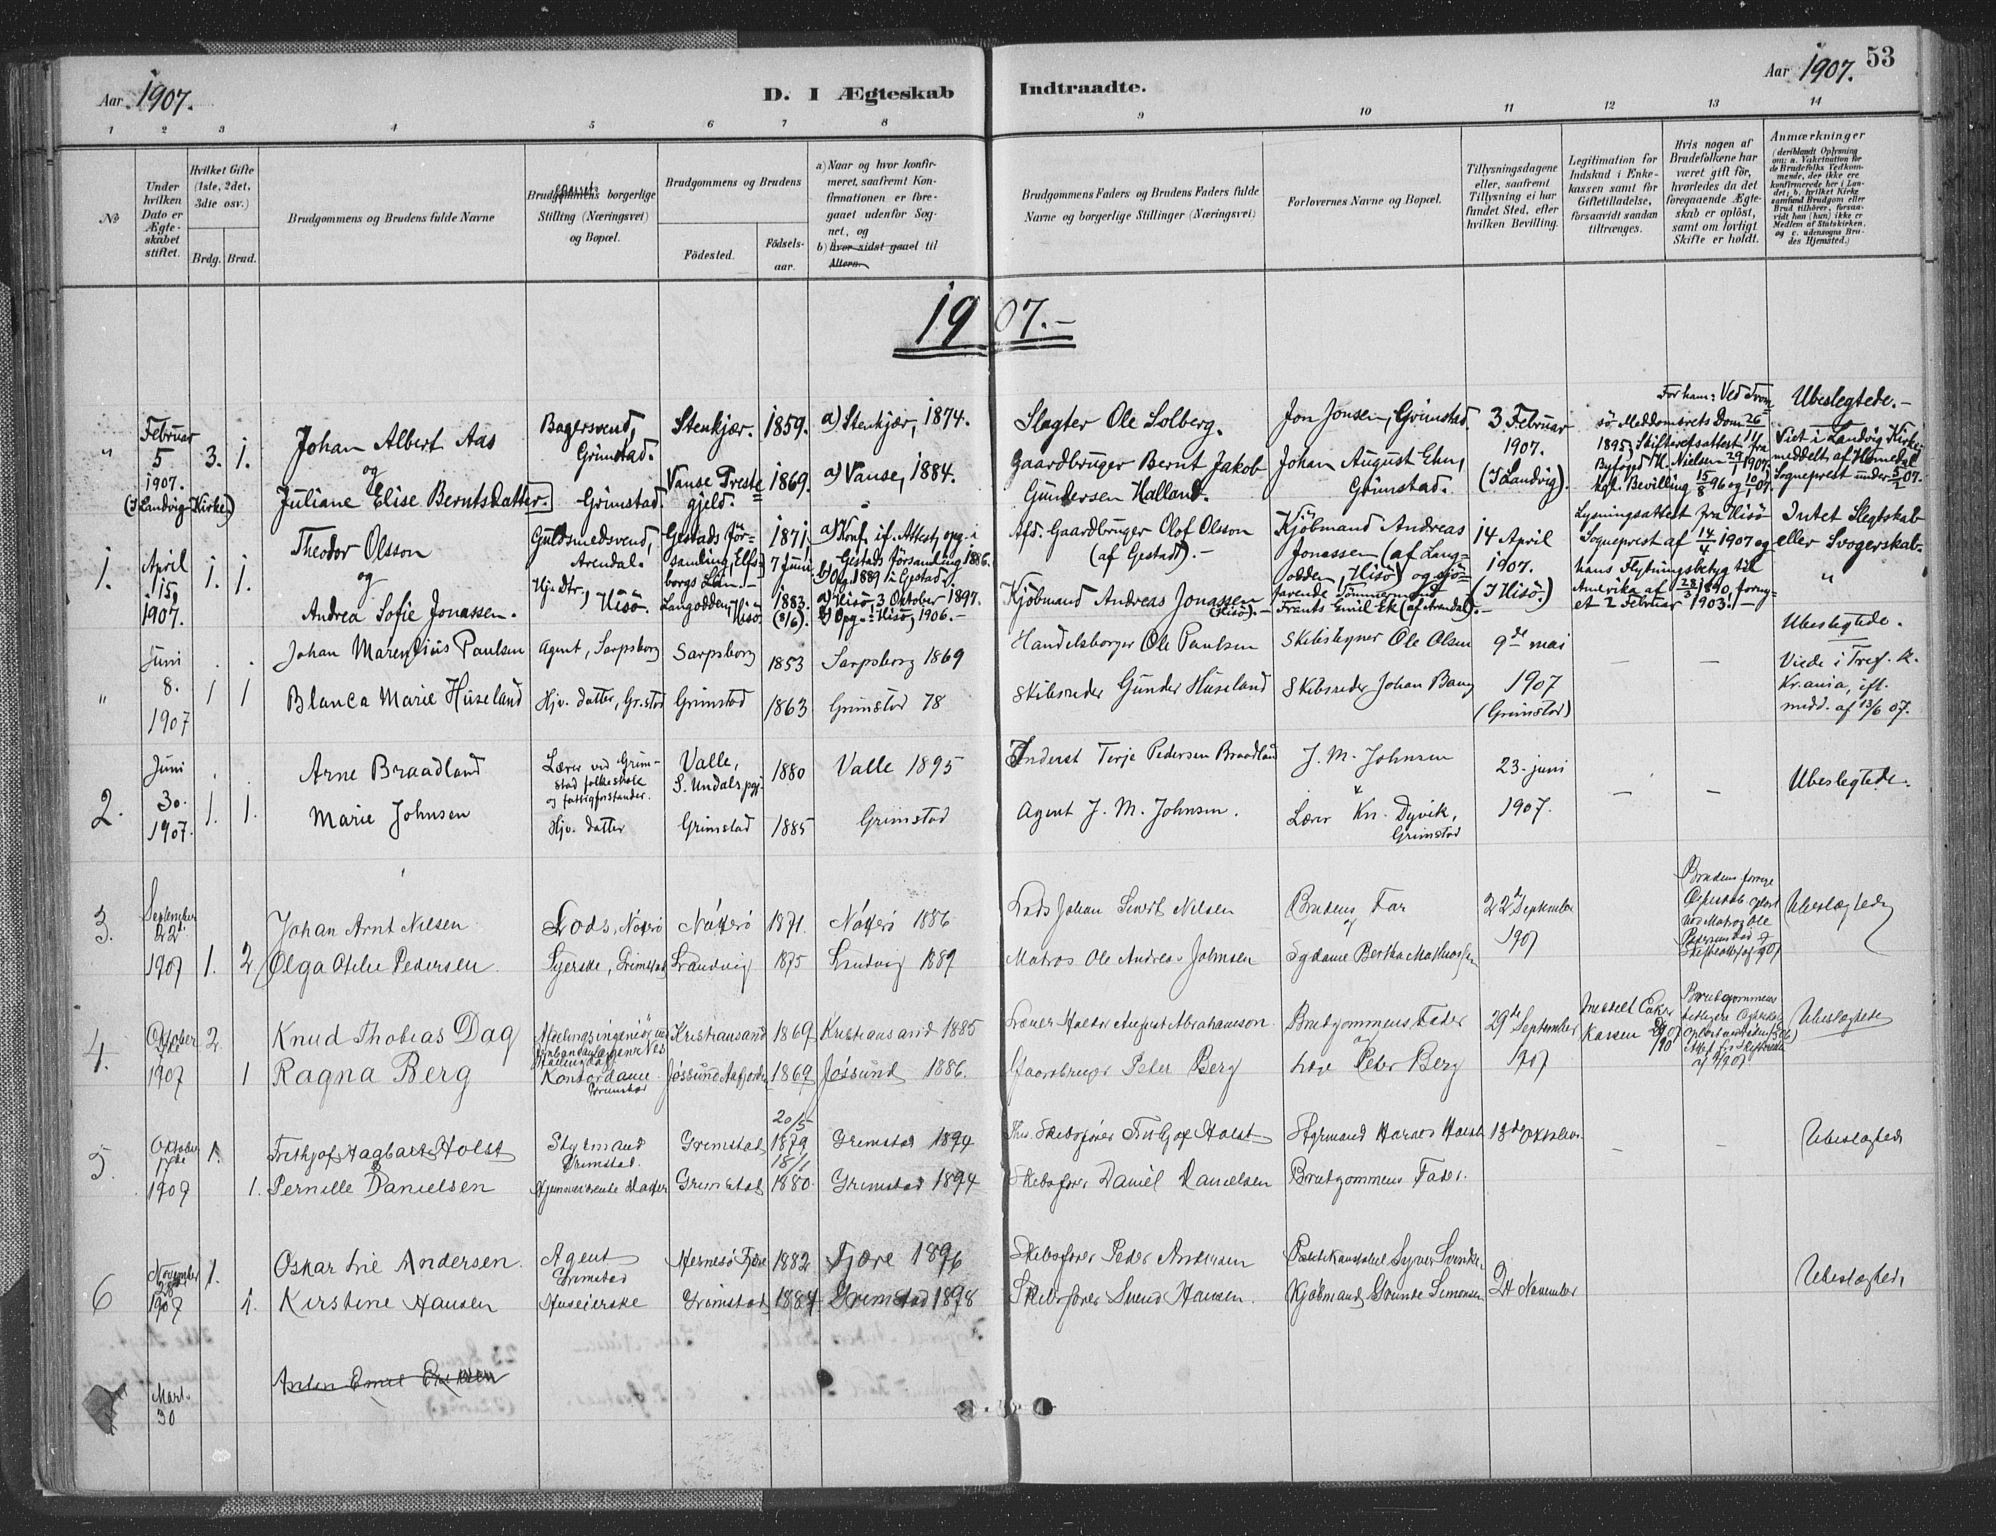 Aar 1907.
D. I Ægteskab Indtraadte.
Aar 1907.
53
1 2 3 4 5 6 7 8 9 10 11 12 13 14
№
Under hvilken Dato er Ægteskabet stiftet.
Hvilket Gifte (1ste, 2det, 3die osv.)
Brdg. Brud.
Brudgommens og Brudens fulde Navne
borgerlige Stilling (Næringsvei) og Bopæl.
Brudgommens og Brudens
Födested.
Födselsaar.
a) Naar og hvor konfirmeret, saafremt Konfirmationen er foregaaet udenfor Sognet, og
b) hvor sidst gaaet til Alters.
Brudgommens Faders og Brudens Faders fulde Navne og borgerlige Stillinger (Næringsvei)
Forlovernes Navne og Bopæl.
Tillysningsdagene eller, saafremt Tillysning ei har fundet Sted, efter hvilken Bevilling.
Legitimation for Indskud i Enkekassen samt for Giftetilladelse, forsaavidt saadan tiltrænges.
Hvis nogen af Brudefolkene har været gift för, hvorledes da det foregaaende Ægteskab er oplöst, samt om lovligt Skifte er holdt.
Anmærkninger
(deriblandt Oplysning om: a. Vakcination for de Brudefolks Vedkommende, der ikke ere konfirmerede her i Landet; b. hvilket Kirkesamfund Brudgom eller Brud tilhörer, forsaavidt han (hun) ikke er Medlem af Statskirken, og c. udensogns Brudes Hjemsted.)
1907.-
" Februar 5 1907. (I Landvig Kirke.) 3. 1.
Johan Albert Aas
og
Juliane Elise Berntsdatter.
Bagersvend, Grimstad.
Grimstad.
Stenkjær. 1859. a) Stenkjær, 1874.
Vanse Prestegjeld. 1869. a) Vanse, 1884.
Slagter Ole Solberg.
Gaardbruger Bernt Jakob Gundersen Halland.
Jon Jonsen, Grimstad.
Johan August Ehn, Grimstad.
3 Februar 1907. (I Landvig).
For ham: Ved Tromsö Meddomsrets Dom 26/11 1895; Skifteretsattest fra Byfoged H. Nielsen 29/1 1907. Kgl. Bevilling 15/8 96 og 10/1 07.
Ubeslegtede.-
Viet i Landvig Kirke, meddelt af Homedal Sogneprest under 5/2 07.
1. April 15, 1907. 1. 1.
Theodor Olsson
og
Andrea Sofie Jonassen.
Guldsmedsvend, Arendal.
Hj. Dtr., Hisö.
Gestads Församling, Elfsborgs Län.
Langodden, Hisö
1871 7 Juni
1883. (8/6).
a) Konf. if. Attest, opg. i Gestads församling 1886.
b) Opg. 1889 i Gestad.
a) Hisö, 3 Oktober 1897.
b) Opg.: Hisö, 1906.-
Afd. Gaardbruger Olof Olsson (af Gestad).-
Kjöbmand Andreas Jonassen (Hisö).-
Kjöbmand Andreas Jonassen (af Langodden, Hisö) og sjöfarende Tömmermand Frants Emil Ek (af Arendal).-
14 April 1907. (I Hisö.)
Lysningsattest fra Hisö Sogneprest af 14/4 1907 og hans Flytningsbetyg til Amerika af 28/3 1890, fornyet 2 Februar 1903.-
Intet Slegtskab eller Svogerskab.
"
" Juni 8. 1907 1 1
Johan Marenzius Paulsen
Blanca Marie Huseland
Agent, Sarpsborg
Hjv. datter, Gr.stad
Sarpsborg 1853 Sarpsborg 1869
Grimstad 1863 Grimstad 78
Handelsborger Ole Paulsen
Skibsreder Gunder Huseland
Skibshyner Ole Olsen
Skibsreder Johan Bang
9de mai 1907 (Grimstad)
– –
Ubeslegtede.
Viede i Tref. K. Kr.ania, ift. medd. af 13/6 07.
2. Juni 30. 1907. 1. 1.
Arne Braadland
Marie Johnsen
Lærer ved Grimstad folkeskole og fattigforstander.
Hjv. datter
Valle, S. Undals pgj. 1880 Valle 1895
Grimstad 1885 Grimstad
Inderst Terje Pedersen Braadland
Agent J. M. Johnsen.
J. M. Johnsen
Lærer Kn. Dyvik, Grimstad
23. juni 1907.
– –
Ubeslegtede.
3. September 22d. 1907 1. 2
Johan Arnt Nilsen
Olga Otilie Pedersen.
Lods, Nøtterø
Syerske, Grimstad
Nøtterø 1871. Nøtterø 1886
Landvig 1875 Landvig 1889
Lods Johan Sivert Nilsen
Matros Ole Andreas Johnsen
Brudens Far
og
Sydame Bertha Mathiassen
22d September 1907
Brudens forrige
Ubeslægtede
4. Oktober 1907 2. 1
Knud Thobias Dag
Ragna Berg
Kontordame Grimstad
Kristiansand 1869 Kristiansand 1885
Jøssund Aafjorden 1869 Jøssund 1886.
August Abrahamson.
Gaardbruger Peter Berg
Brudgommens Fader
og
Peter Berg
29de September 1907
Brudgommens tidligere
Ubeslægtede
5 Oktober 17de 1907 1. 1.
Frithjof Hagbart Holst
Pernille Danielsen
Styrmand Grimstad.
Hjemmeværende Datter
Grimstad 20/5 1879 Grimstad 1894
Grimstad 18/1 1880. Grimstad 1894
Skibsfører Frithjof Holst
Skibsfører Daniel Danielsen
Styrmand Holst
Brudgommens Fader.
13de Oktober
–
Ubeslægtede
6 November 28de 1907 1. 1.
Oskar Lie Andersen.
Kirstine Hansen
Agent Grimstad
Huseierske
Hesnesø Fjære 1882 Fjære 1896
Grimstad 1884 Grimstad 1898
Skibsfører Peder Andersen
Skibsfører Svend Hansen.
Kjøbmand Simonsen
24 November
Ubeslægtede
Mart. 30
Anton Emil